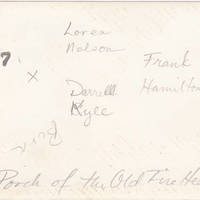 Loren
Nelson
7
X
Frank
Hamilton
Darrell
Kyle
Porch of the Old Fire He